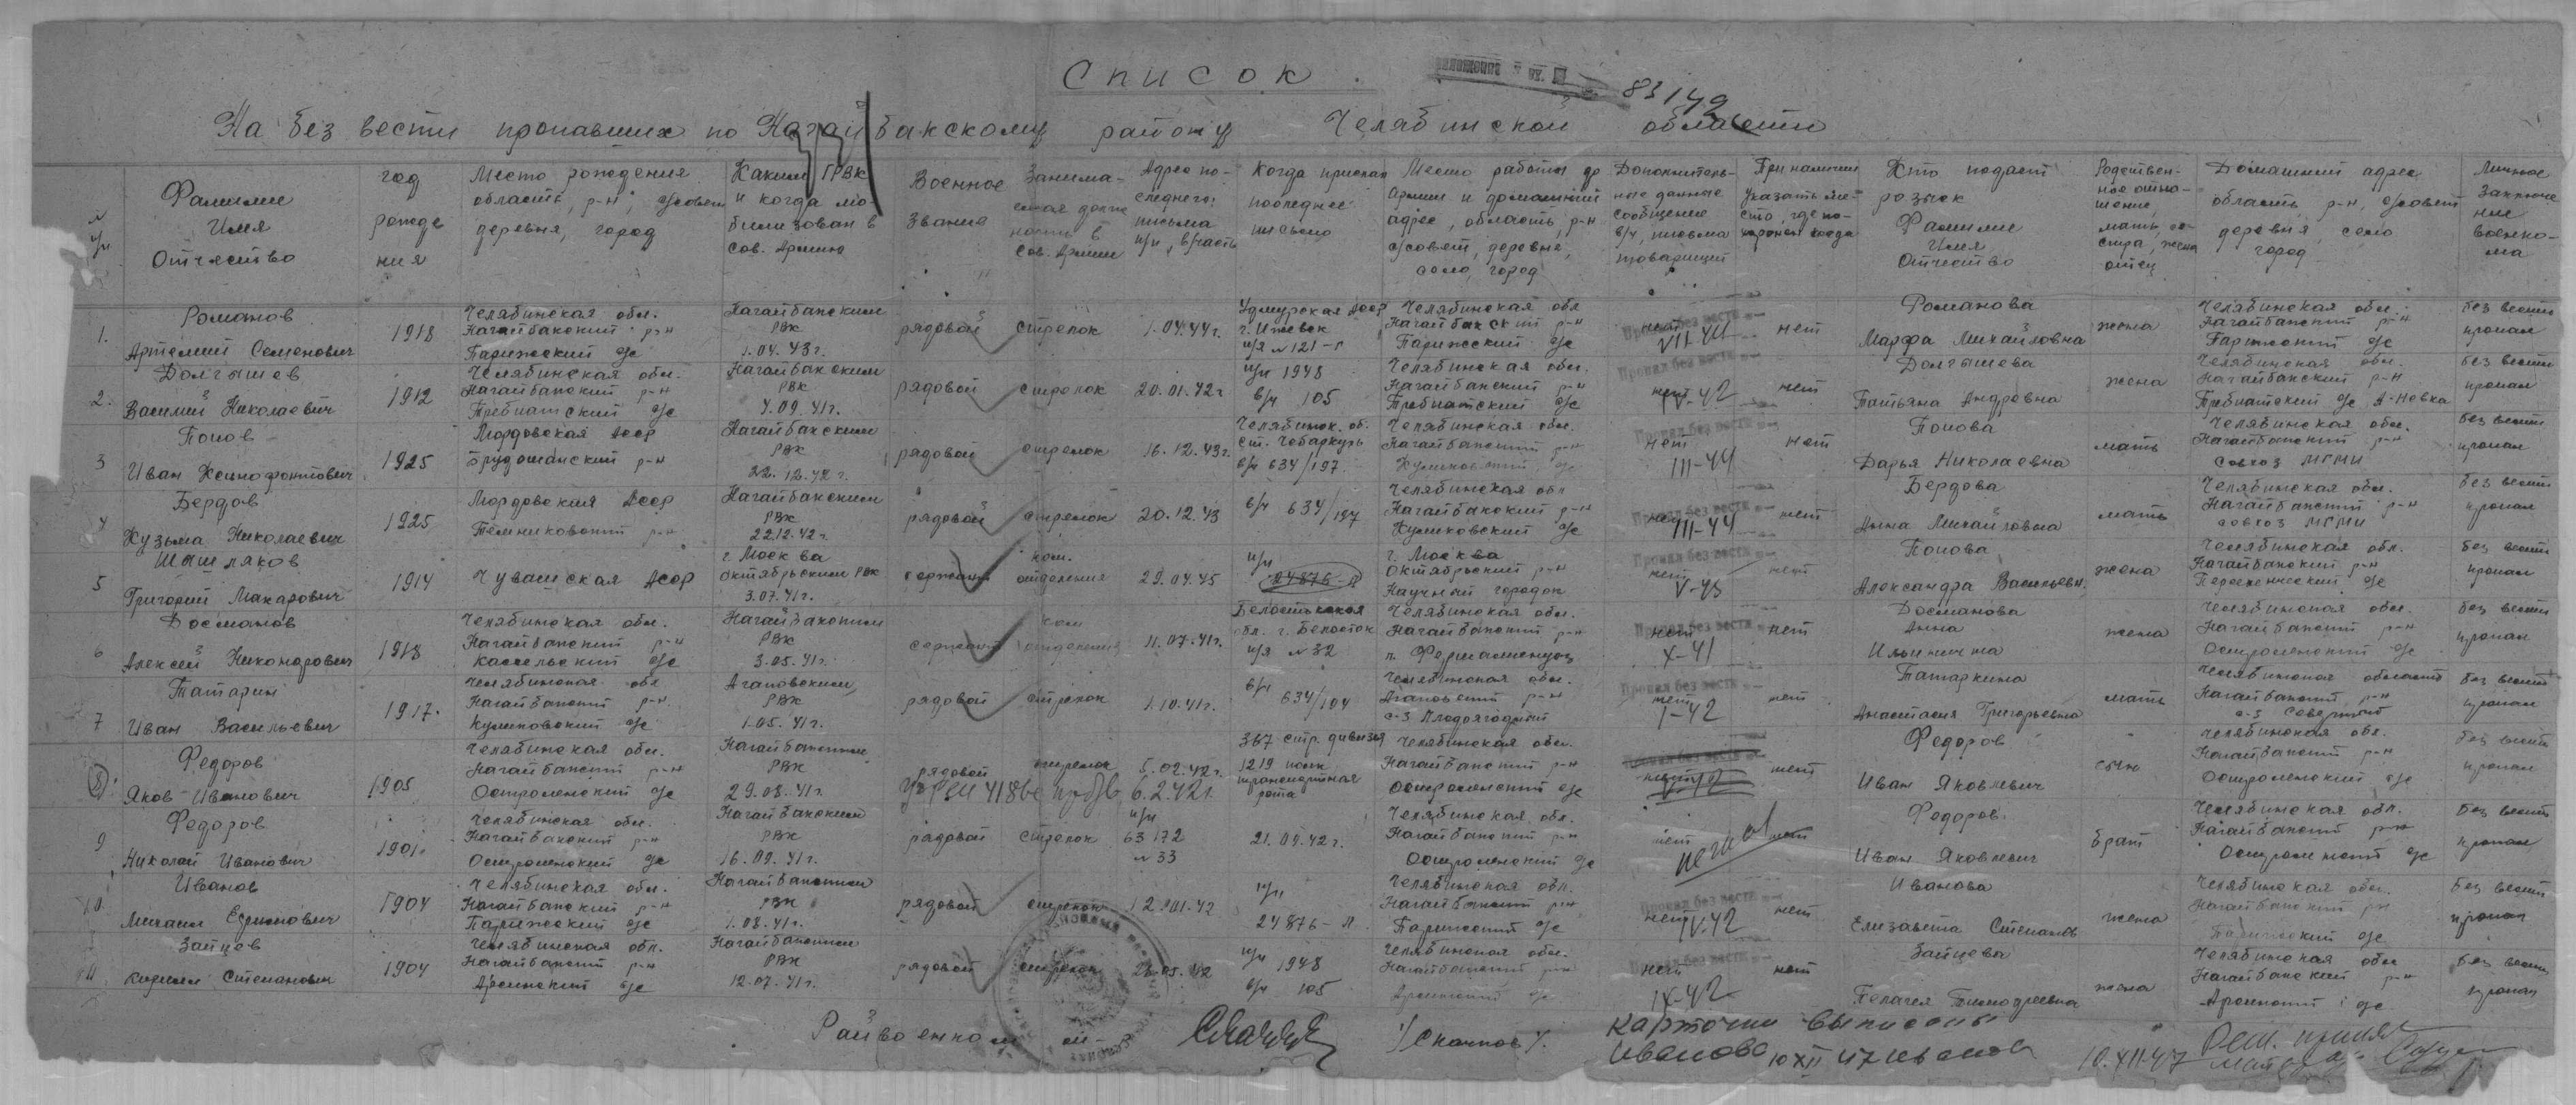 Список
83149
На без вести пропавших по Нагайбакскому району Челябинской области
№ п/п
Фамилие Имя Отчество
год рождения
Место рождения область, р-н, с/совет деревня, город
Каким ГРВК и когда мобилизован в Сов. Армию
Военное звание
Занимаемая должность в Сов. Армии
Адрес последнего письма п/п, в/часть
Когда прислал последнее письмо
Место работы до Армии и домашний адрес, область, р-н с/совет, деревня, село, город
Дополнительные данные сообщение в/ч, письма товарищей
При наличии указать место, где похоронен когда
Кто подает розыск Фамилие Имя Отчество
Родственное отношение, мать, сестра, жена отец
Домашний адрес область, р-н, с/совет деревня, село город
Личное заключение военкома
1. Романов Артемий Семенович
1918
Челябинская обл. Нагайбакский р-н Парижский с/с
Нагайбакским РВК 1.04.43г.
рядовой
стрелок
1.04.44г.
Удмурская АССР г. Ижевск п/я №121-г
Челябинская обл Нагайбакский р-н Парижский с/с
Пропал без вести
нет
VII-44
нет
Романова Марфа Михайловна
жена
Челябинская обл. Нагайбакский р-н Парижский с/с
без вести пропал
2. Долгышев Василий Николаевич
1912
Челябинская обл. Нагайбакский р-н Требиатский с/с
Нагайбакским РВК 4.09.41г.
рядовой
стрелок
20.01.42г
п/п 1948 в/ч 105
Челябинская обл. Нагайбакский р-н Требиатский с/с
Пропал без вести
нет
IV-42
нет
Долгышева Татьяна Андревна
жена
Челябинская обл. Нагайбакский р-н Требиатский с/с
без вести пропал
3 Попов Иван Ксинофонтович
1925
Мордовская АССР р-н
Нагайбакским РВК 22.12.42г.
рядовой
стрелок
16.12.43г.
Челябинск. об. ст. Чебаркуль в/ч 634/197
Челябинская обл. Нагайбакский р-н Куликовский с/с
Пропал без вести
нет
III-44
нет
Попова Дарья Николаевна
мать
Челябинская обл. Нагайбакский р-н совхоз МГМИ
без вести пропал
4 Бердов Кузьма Николаевич
1925
Мордовская АССР Темниковский р-н
Нагайбакским РВК 22.12.42г
рядовой
стрелок
20.12.43
в/ч 634/197
Челябинская обл Нагайбакский р-н Куликовский с/с
Пропал без вести
нет
III-44
нет
Бердова Анна Михайловна
мать
Челябинская обл. Нагайбакский р-н совхоз МГМИ
без вести пропал
5 Шашляков Григорий Макарович
1914
Чувашская АССР
г. Москва Октябрьским РВК 3.07.41г.
сержант
ком. отделения
29.04.45
п/п 24876-Л
г. Москва Октябрьский р-н Научный городок
Пропал без вести
нет
V-45
нет
Попова Александра Васильевн.
жена
Челябинская обл. Нагайбакский р-н с/с
без вести пропал
6 Досманов Алексей Никонорович
1918
Челябинская обл. Нагайбакский р-н Кассельский с/с
Нагайбакским РВК 3.05.41г.
сержант
ком отделения
11.07.41г.
Белостокская обл. г. Белосток п/я №32
Челябинская обл. Нагайбакский р-н п. Фершампенуаз
Пропал без вести
нет
X-41
нет
Досманова Анна Ильинична
жена
Челябинская обл. Нагайбакский р-н Остроленский с/с
без вести пропал
7 Татаркин Иван Васильевич
1917.
Челябинская обл Нагайбакский р-н Куликовский с/с
Агаповским РВК 1.05.41г.
рядовой
стрелок
1.10.41г.
в/ч 634/104
Челябинская обл. Агаповский р-н с-з Плодоягодный
Пропал без вести
нет
I-42
нет
Татаркина Анастасия Григорьевна
мать
Челябинская область Нагайбакский р-н с-з Северный
без вести пропал
8. Федоров Яков Иванович
1905
Челябинская обл. Нагайбакский р-н Остроленский с/с
Нагайбакским РВК 29.08.41г.
рядовой
стрелок
5.02.42г.
6.2.42г.
367 стр. дивизия 1219 полк рота
Челябинская обл. Нагайбакский р-н Остроленский с/с
нет
нет
Федоров Иван Яковлевич
сын
Челябинская обл. Нагайбакский р-н Остроленский с/с
без вести пропал
9 Федоров Николай Иванович
1901.
Челябинская обл. Нагайбакский р-н Остроленский с/с
Нагайбакским РВК 16.09.41г.
рядовой
стрелок
п/п 63172 №33
21.09.42г.
Челябинская обл. Нагайбакский р-н Остроленский с/с
нет
нет
Федоров Иван Яковлевич
брат
Челябинская обл. Нагайбакский р-н Остроленский с/с
без вести пропал
10. Иванов Михаил Ефимович
1904
Челябинская обл. Нагайбакский р-н Парижский с/с
Нагайбакским РВК 1.08.41г.
рядовой
стрелок
12.01.42
п/п 24876-Л
Челябинская обл. Нагайбакский р-н Парижский с/с
Пропал без вести
нет
IV-42
нет
Иванова Елизавета Степанов
жена
Челябинская обл. Нагайбакский р-н Парижский с/с
без вести пропал
11. Зайцев Кирилл Степанович
1904
Челябинская обл. Нагайбакский р-н Арсинский с/с
Нагайбакским РВК 12.07.41г.
рядовой
стрелок
п/п 1948 в/ч 105
Челябинская обл. Нагайбакский р-н Арсинский с/с
Пропал без вести
нет
IX-42
нет
Зайцева Пелагея Тимофеевна
жена
Челябинская обл Нагайбакский р-н Арсинский с/с
без вести пропал
Райвоенком
/Скачков/.
карточки выписаны
Иванова 10 XII 47 Иванова
10.XII-47